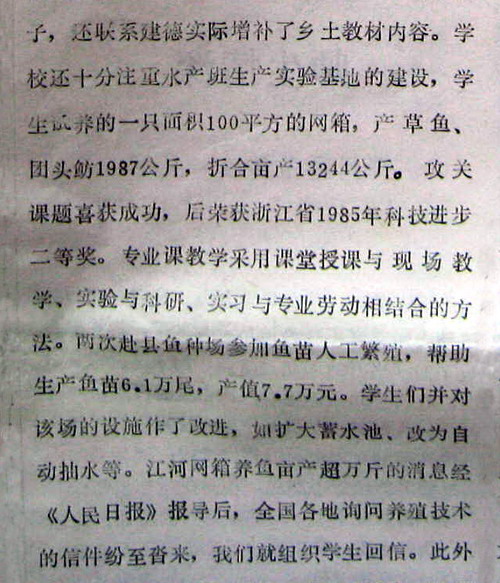 子，还联系建德实际增补了乡土教材内容。学
校还十分注重水产班生产实验基地的建设，学
生试养的一只面积100平方的网箱，产草鱼、
团头鲂1987公斤，折合亩产13244公斤。攻关
课题喜获成功，后荣获浙江省1985年科技进步
二等奖。专业课教学采用课堂授课与现场教
学、实验与科研、实习与专业劳动相结合的方
法。两次赴县鱼种场参加鱼苗人工繁殖，帮助
生产鱼苗6.1万尾，产值7.7万元。学生们并对
该场的设施作了改进，如扩大蓄水池、改为自
动抽水等。江河网箱养鱼亩产超万斤的消息经
《人民日报》报导后，全国各地询问养殖技术
的信件纷至沓来，我们就组织学生回信。此外